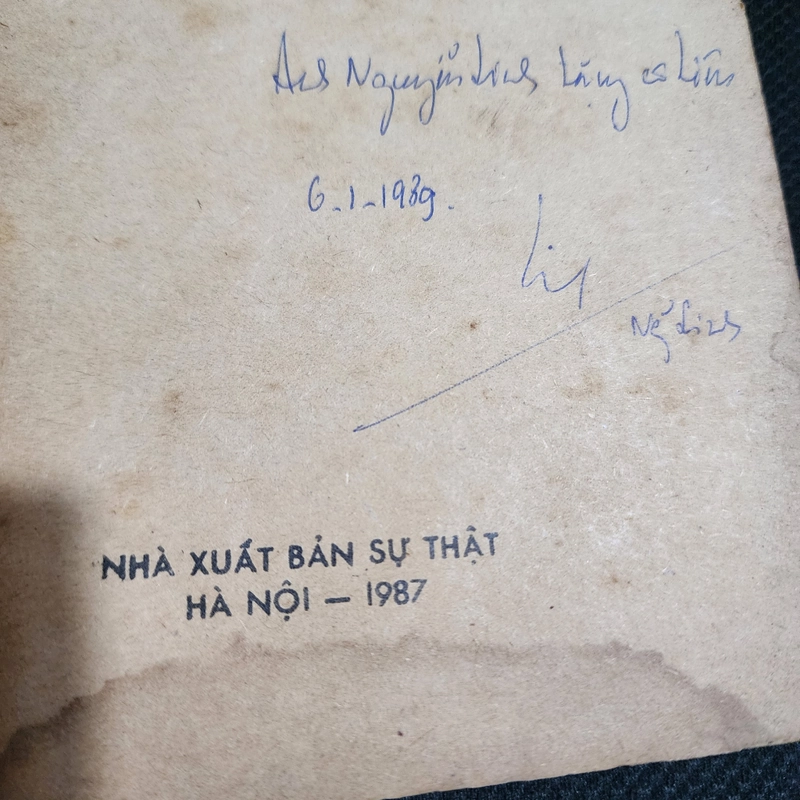 Anh Nguyễn Linh tặng cô Liên
6-1-1989.
Linh
Ng Linh
NHÀ XUẤT BẢN SỰ THẬT
HÀ NỘI — 1987